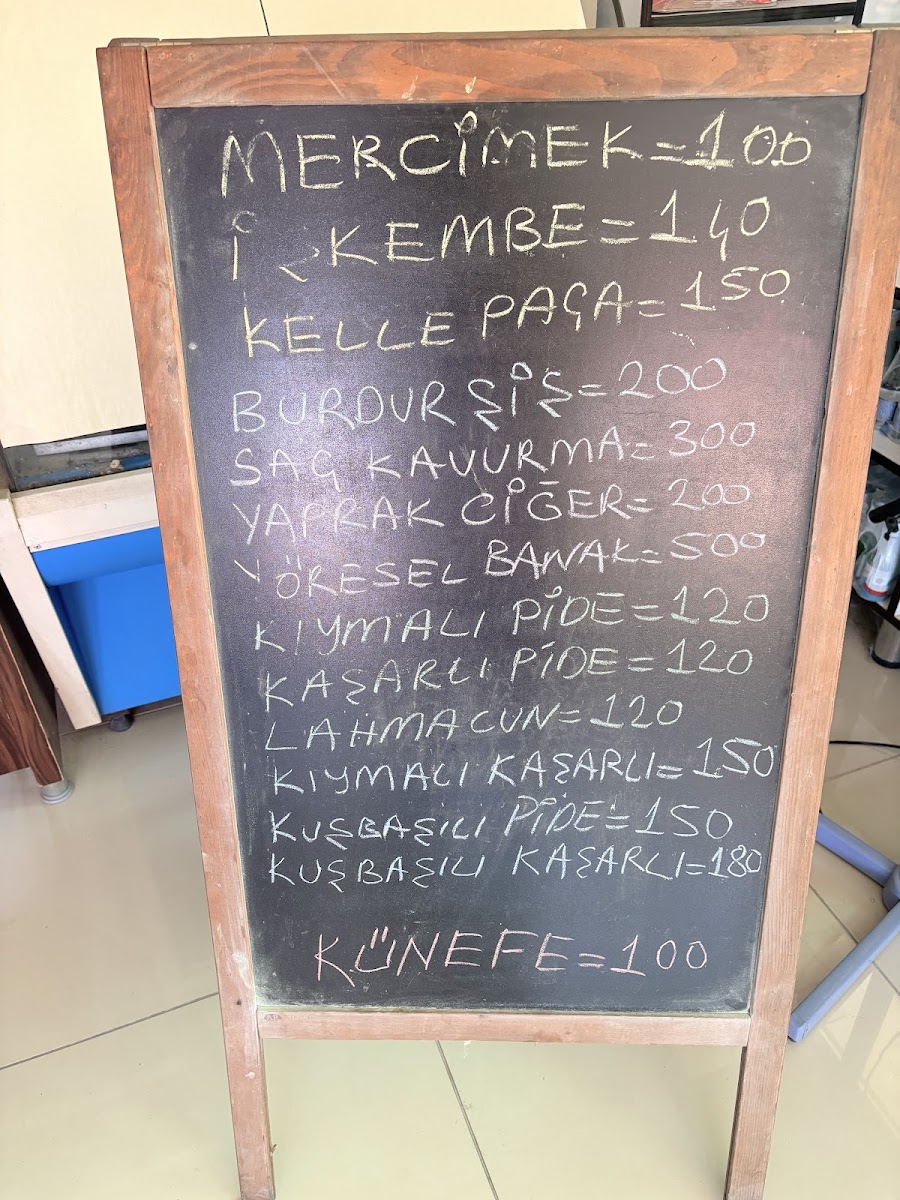 MERCİMEK=100
İŞKEMBE=140
KELLE PAÇA=150
BURDUR ŞİŞ=200
SAÇ KAVURMA=300
YAPRAK CİĞER=200
YÖRESEL BANAK=500
KIYMALI PİDE=120
KAŞARLI PİDE=120
LAHMACUN=120
KIYMALI KAŞARLI=150
KUŞBAŞILI PİDE=150
KUŞBAŞILI KAŞARLI=180
KÜNEFE=100